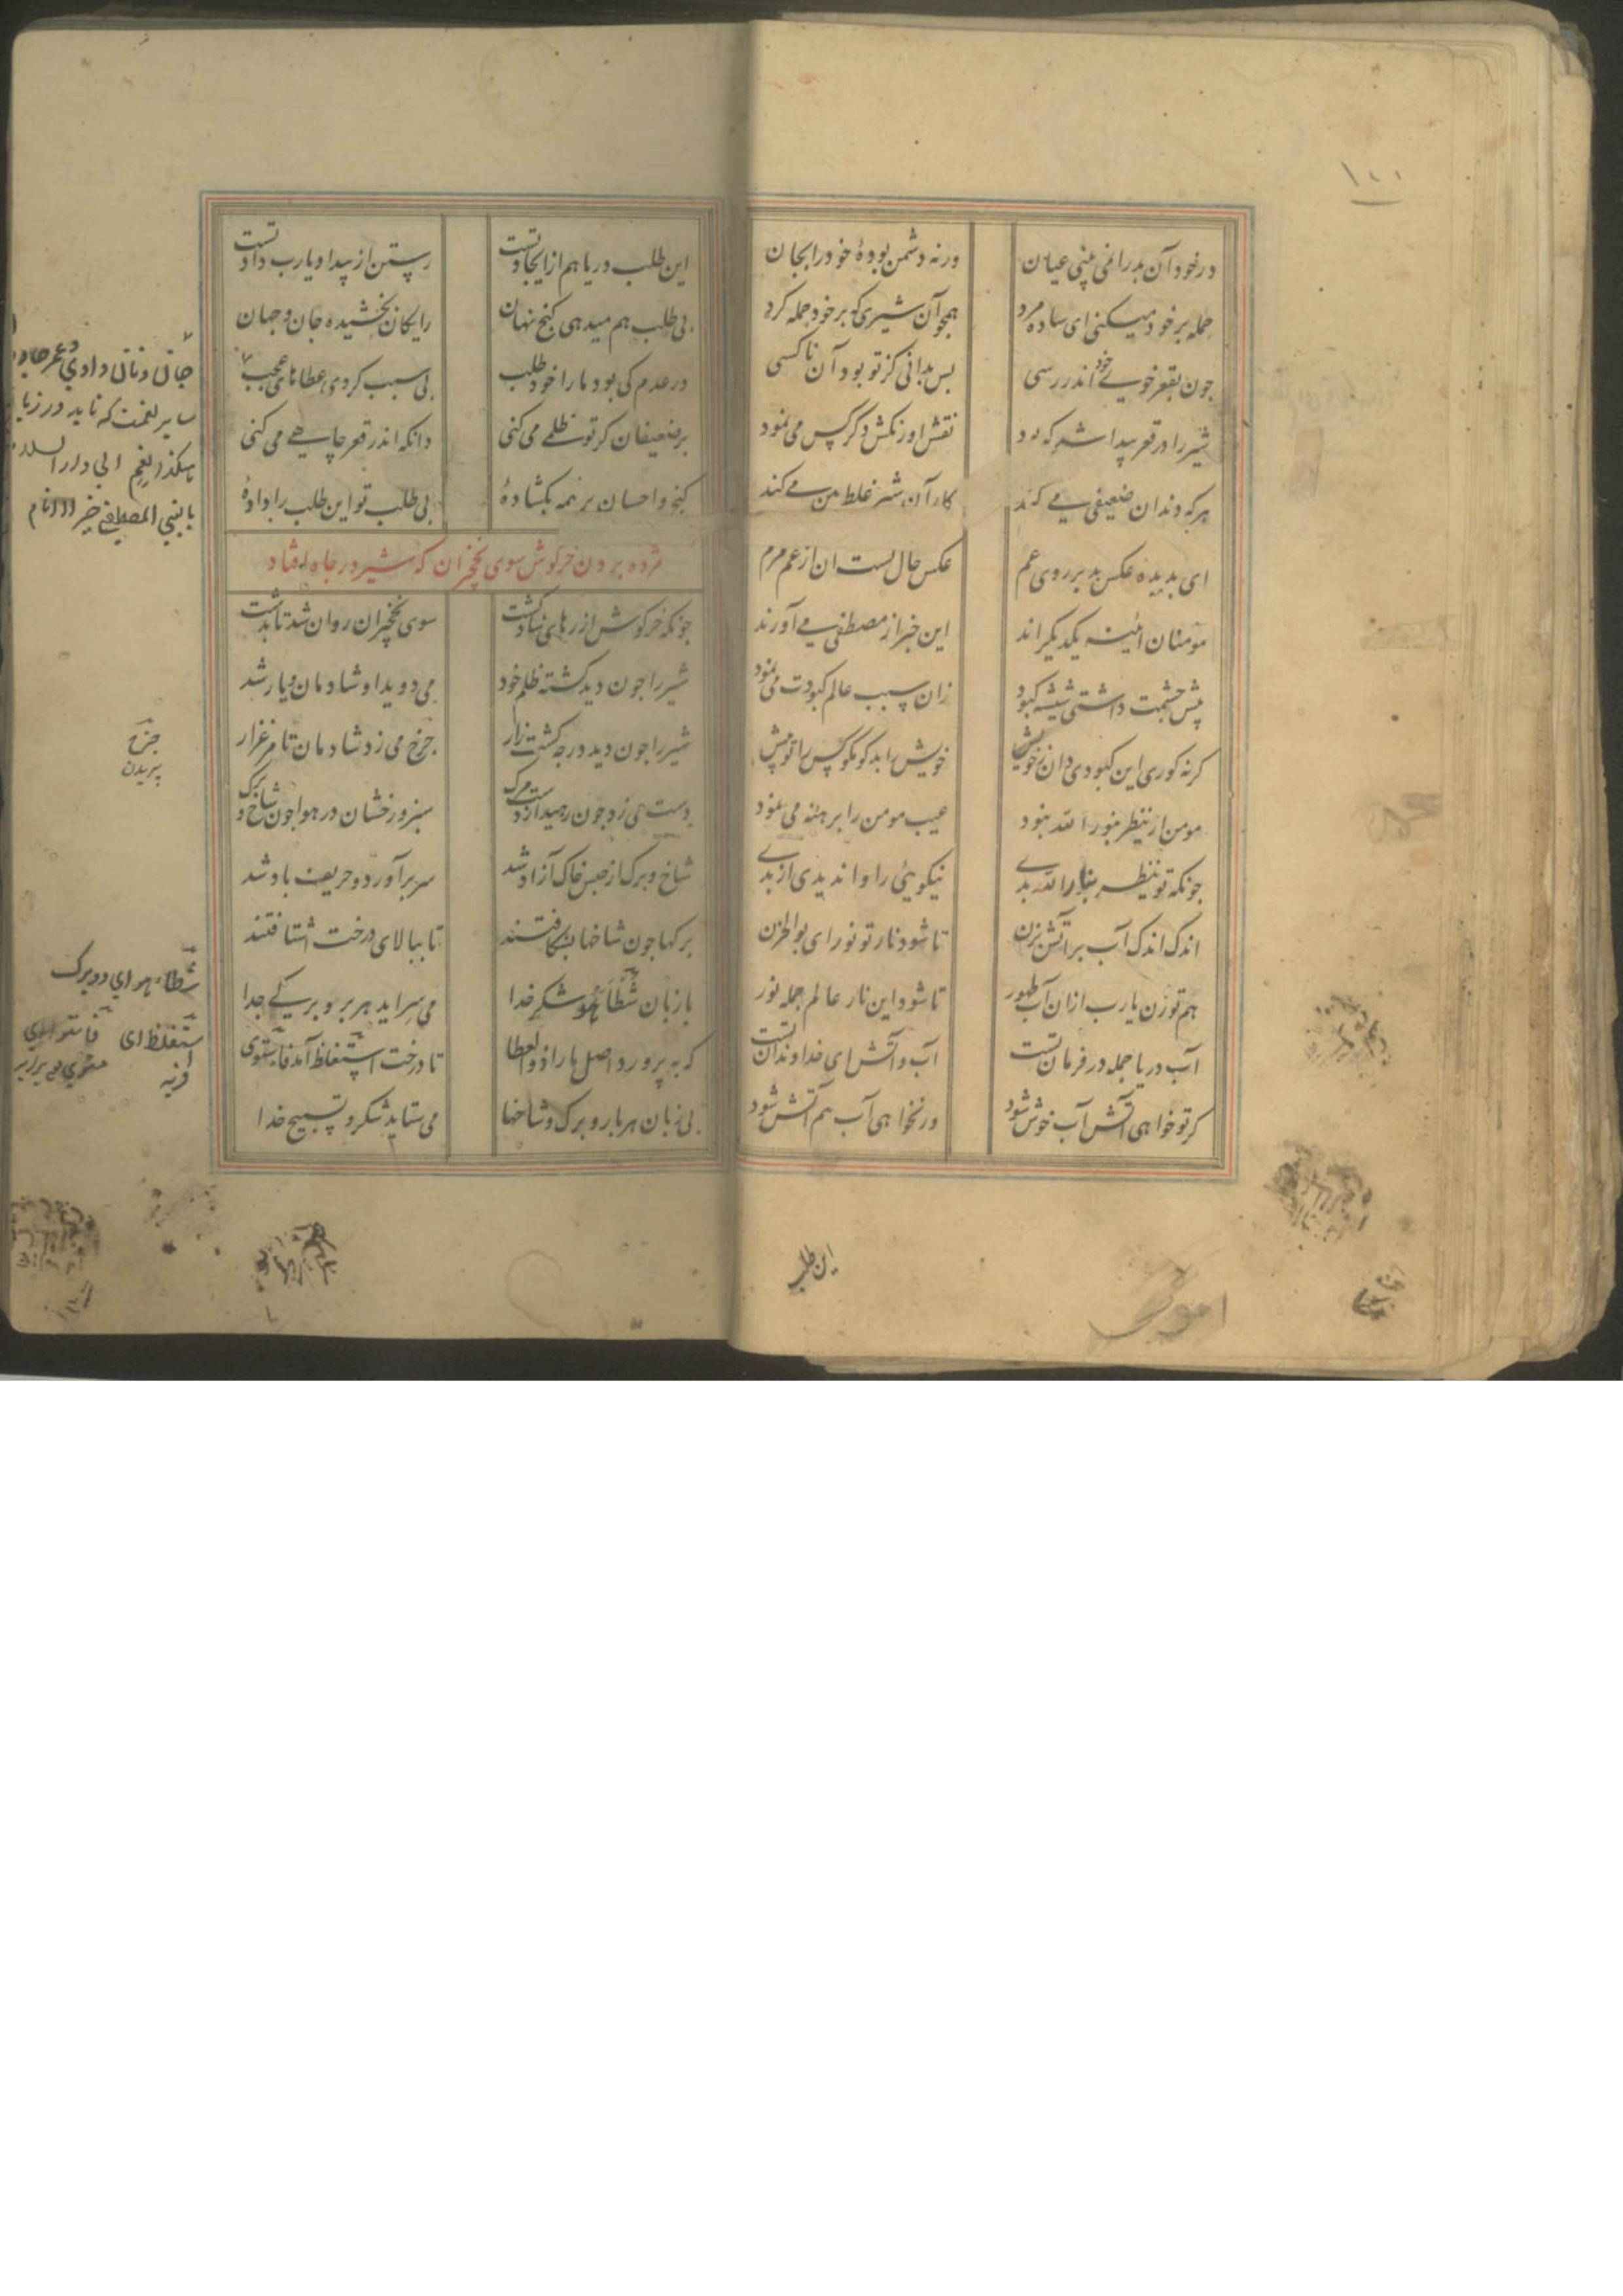 ۱۰۱
درخود آن بد را نمی بینی عیان
ورنه دشمن بودهٔ خود را بجان
حمله بر خود میکنی ای ساده مرد
همچو آن شیری که بر خود حمله کرد
چون بقعر خوی خود اندر رسی
بس بدانی کز تو بود آن ناکسی
شیر را در قعر پیدا شد که بود
نقش او زنکش دگر کس می نمود
هر که دندان ضعیفی می کند
کار آن شیر غلط من می کند
ای بدیده عکس بد بر روی عم
عکس حال تست آن از عم مرم
مومنان آئینه یکدیگراند
این خبر از مصطفی می آورند
پیش چشمت داشتی شیشه کبود
زان سبب عالم کبودت می نمود
کرنه کوری این کبودی دان زخویش
خویش را بد کو مکو کس را تو بیش
مومن ار ینظر بنور الله نبود
عیب مومن را برهنه می نمود
جونکه تو ینظر بنار الله بدی
نیکویی را واندیدی از بدی
اندک اندک آب بر آتش بزن
تا شود نار تو نور ای بوالحزن
هم تو زن یا رب ازان آب طهور
تا شود این نار عالم جمله نور
آب دریا جمله در فرمان تست
آب و آتش ای خداوند آن تست
کر تو خواهی آتش آب خوش شود
ور نخواهی آب هم آتش شود
این طلب
این طلب در ما هم از ایجاد تست
رستن از بیداد یا رب داد تست
بی طلب هم میدهی کنج نهان
رایکان بخشیده جان و جهان
در عدم کی بود ما را خود طلب
بی سبب کردی عطاهای عجب
جان و نان دادی و عمر جاودان
سایر نعمت که ناید در زبان
بر ضعیفان کر تو ظلمی می کنی
دانکه اندر قعر چاهی می کنی
کنج و احسان بر همه بکشادهٔ
بی طلب تو این طلب را دادهٔ
هکذا انعم الی دار السلام
بالنبی المصطفی خیر الانام
مژده بردن خرکوش سوی نخچیران که شیر در چاه افتاد
جونکه خرکوش از رهایی شاد کشت
سوی نخچیران روان شد تا بدشت
شیر را جون دید کشته ظلم خود
می دوید او شادمان و یا رشد
شیر را جون دید در چه کشت زار
جرخ می زد شادمان تا مرغزار
جرخ
پریدن
دست می زد جون رهید از دست مرک
سبز و رخشان در هوا جون شاخ و برک
شاخ و برک از حبس خاک آزاد شد
سر برآورد و حریف باد شد
برکها جون شاخها بشکافتند
تا ببالای درخت اشتافتند
با زبان شطأه شکر خدا
می سراید هر بر و برکی جدا
شطأه ای دو برک
که بپرورد اصل ما را ذوالعطا
تا درخت استغلظ آمد فاستوی
استغلظ ای فربه
فاستوی ای
بی زبان هر بار و برک و شاخها
می ستاید شکر و تسبیح خدا